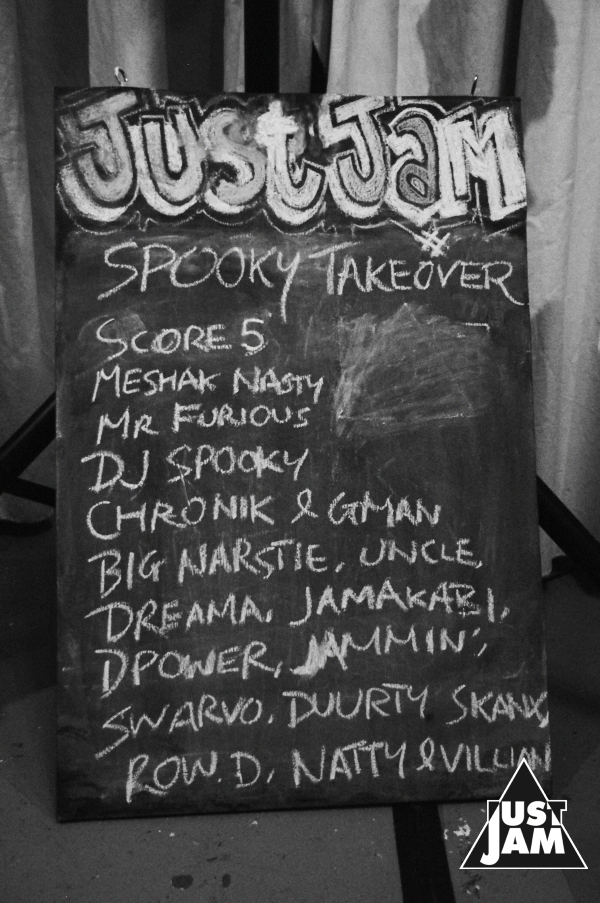 Just Jam
SPOOKY TAKEOVER
SCORE 5
MESHAK NASTY
MR FURIOUS
DJ SPOOKY
CHRONIK & GMAN
BIG NARSTIE, UNCLE,
DREAMA, JAMAKABI,
DPOWER, JAMMIN',
SWARVO, DUURTY SKANX,
ROW.D, NATTY & VILLIAN
JUST
JAM